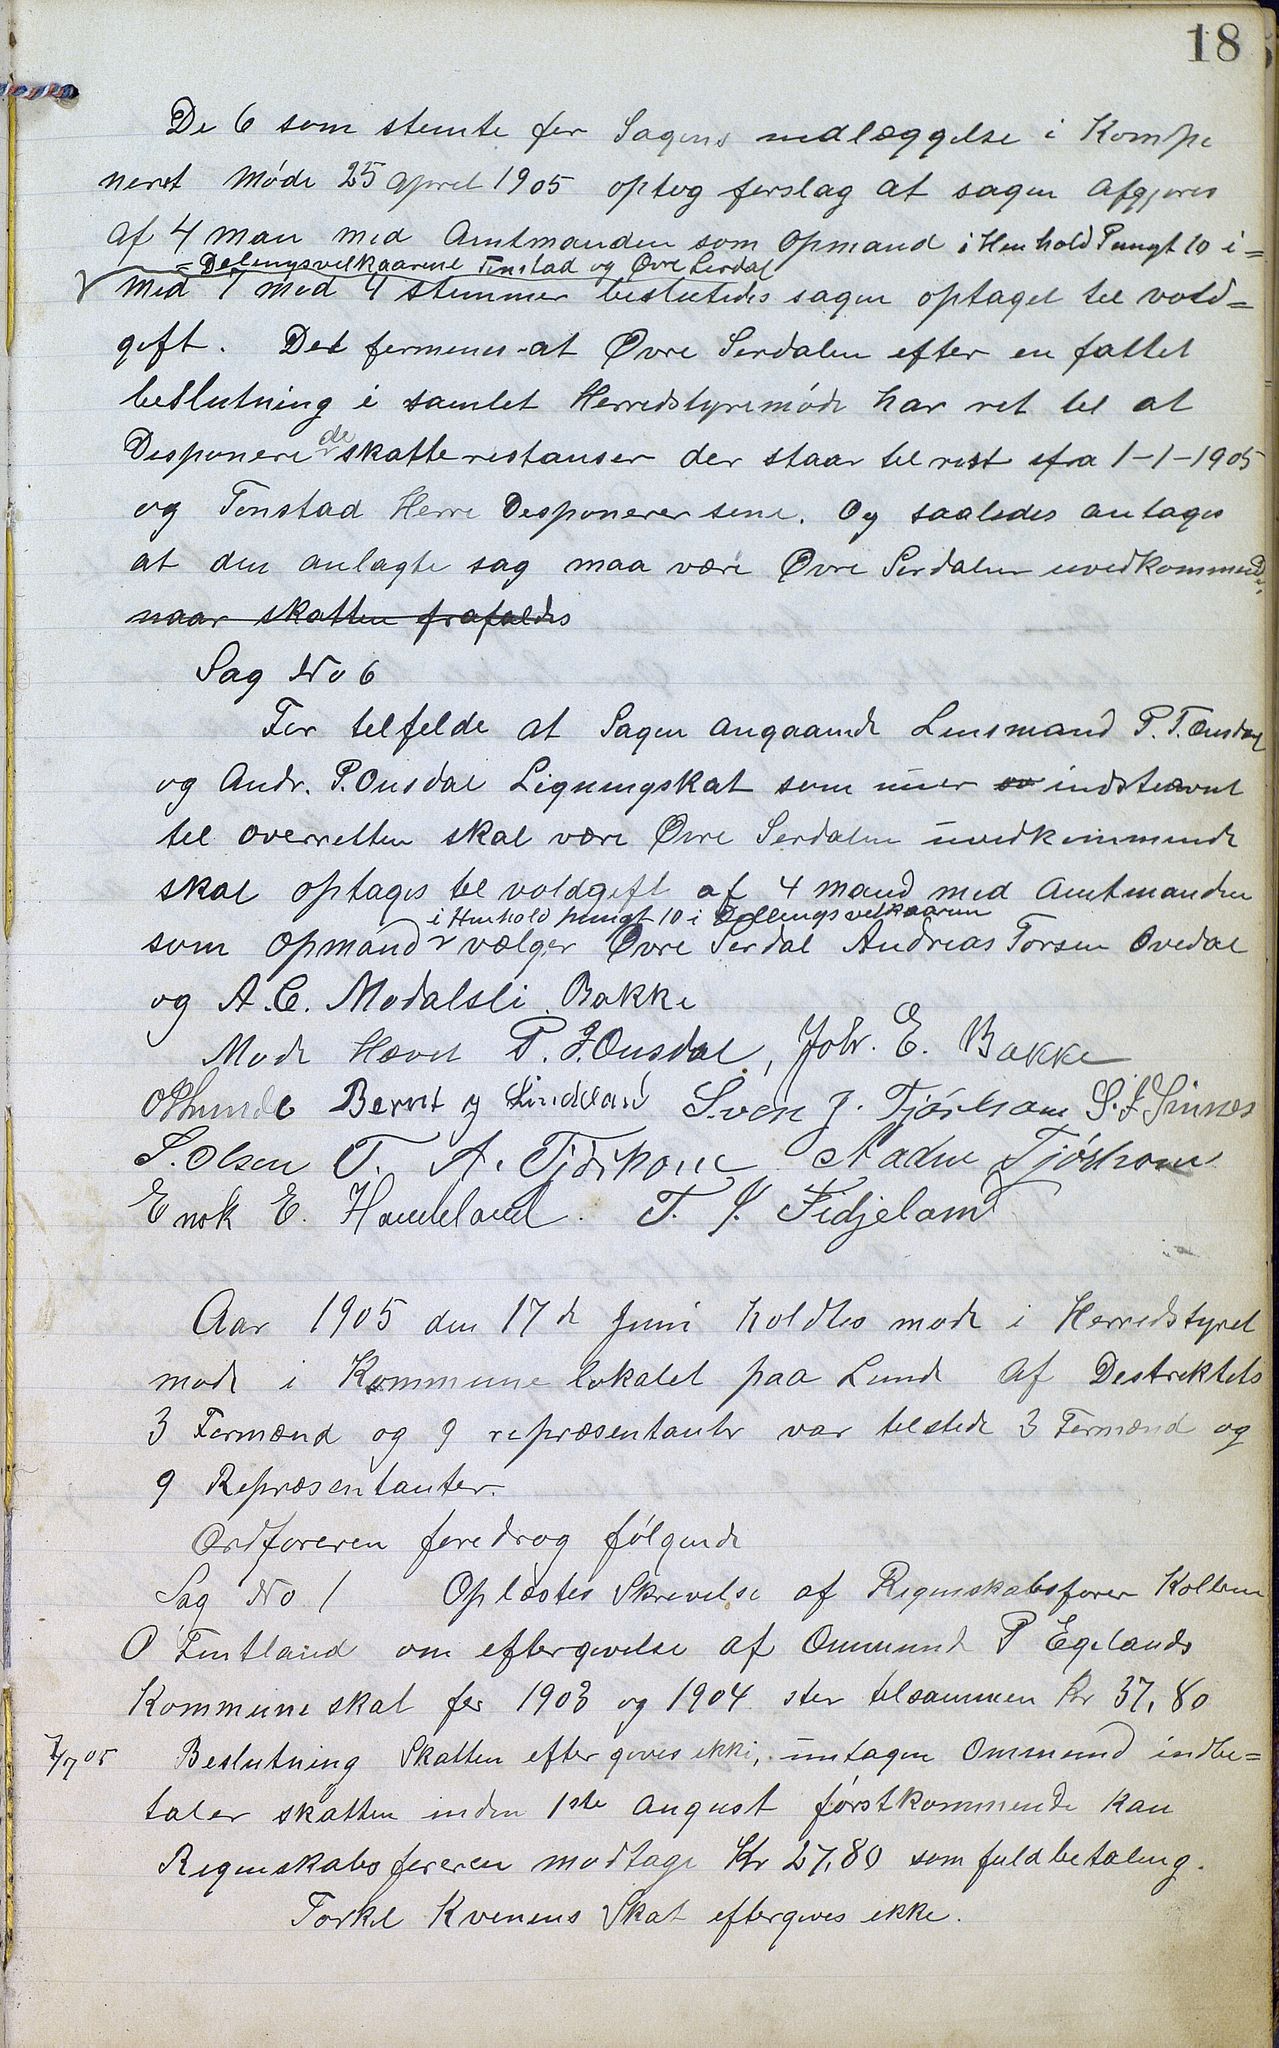 18
De 6 som stemte for Sagens nedlæggelse i Kombi
neret Møde 25 April 1905 optog forslag at sagen afgjøres
af 4 man med Amtmanden som Opmand i Henhold Pungt 10 i=
=Delingsvelkaarene Tonstad og Øvre Serdal
Med 7 mod 4 stemmer besluttedes sagen optaget til vold=
gift. Det formenes at Øvre Serdalen efter en fattet
beslutning i samlet Herredstyremøde har ret til at
Desponere de skatterestanser der staar til rest ifra 1-1-1905
og Tonstad Herre Desponerer sine. Og saaledes antages
at den anlagte sag maa være Øvre Serdalen uvedkommende
naar skatten frafaldes
Sag No 6
For tilfelde at Sagen angaaende Lensmand P. T. Ousdal
og Andr. P. Ousdal Ligningskat som nu er indstævnt
til overretten skal være Øvre Serdalen uvedkommende
skal optages til voldgift af 4 mand med Amtmanden
i Henhold pungt 10 i Delingsvelkaarene
som Opmand vælger Øvre Serdal Andreas Torsen Ovedal
og A. C. Modalsli Bakke
Mode Hævet P. J. Ousdal, Joh. E. Bakke
O P Lunde Bernt J Lindeland Sven J. Tjørhom S. F Sinnes
S. Olsen T. A. Tjørhom Aadne Tjørhom
Enok E. Haneland. T. J. Fidjeland
Aar 1905 den 17de Juni holdtes mode i Herredstyret
mode i Kommunelokalet paa Lunde af Destriktets
3 Formænd og 9 repræsentanter var tilstede 3 Formænd og
9 Repræsentanter.
Ordforeren foredrog følgende
Sag No 1 Oplæstes Skrivelse af Regnskabsforer Kolben
O Fintland om eftergivelse af Ommund P Egelands
Kommuneskat for 1903 og 1904 stor tilsammen Kr 37,80
7/7 05 Beslutning Skatten eftergives ikke, untagen Ommund indbe=
taler skatten inden 1ste August førstkommende kan
Regnskabsforeren modtage Kr 27,80 som fuld betaling.
Torkel Kvenens Skat eftergives ikke.